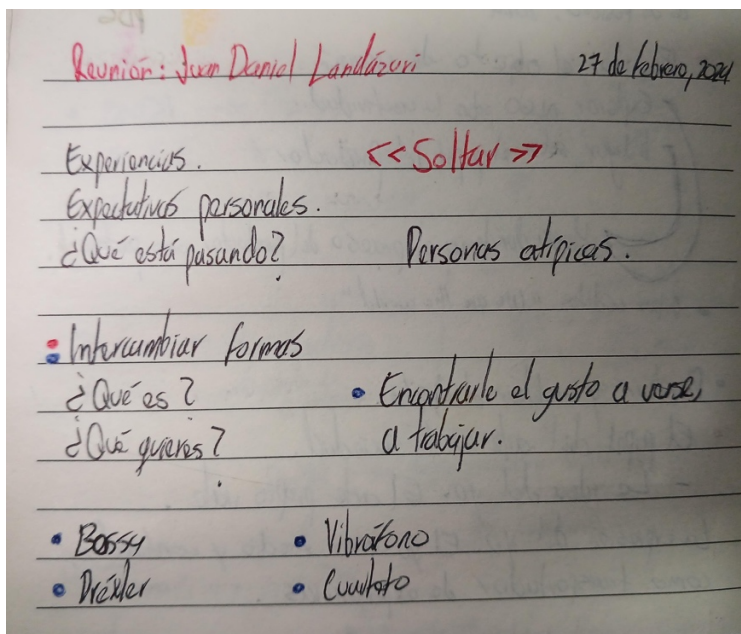 Reunión: Juan Daniel Landázuri 27 de febrero, 2024
Experiencias. <<Soltar>>
Expectativas personales.
¿Qué está pasando? Personas atípicas.
Intercambiar formas
¿Qué es? • Encontrarle el gusto a verse,
¿Qué quieres? a trabajar.
• Bossy • Vibráfono
• Drexler • Cuarteto